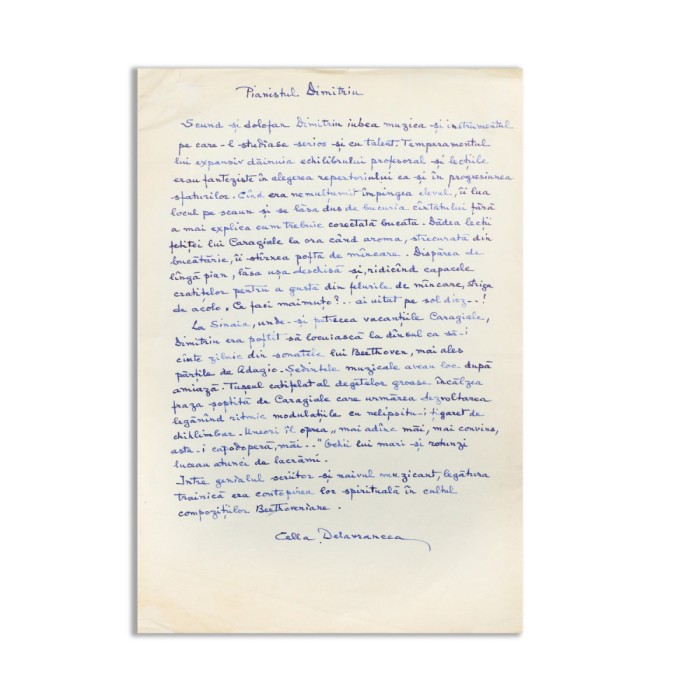 Pianistul Dimitriu
Scund și dolofan Dimitriu iubea muzica și instrumentul
pe care-l studiase serios și cu talent. Temperamentul
lui expansiv dăinuia echilibrului profesoral și lecțiile
erau fanteziste în alegerea repertoriului ca și în progresiunea
sfaturilor. Cînd era nemulțumit împingea elevul, îi lua
locul pe scaun și se lăsa dus de bucuria cîntatului fără
a mai explica cum trebuie corectată bucata. Dădea lecții
fetiței lui Caragiale la ora când aroma, strecurată din
bucătărie, îi stîrnea pofta de mîncare. Dispărea de
lîngă pian, lăsa ușa deschisă și, ridicînd capacele
cratițelor pentru a gusta din felurile de mîncare, striga
de acolo „Ce faci maimuțo?.. ai uitat pe sol diez..!
La Sinaia, unde-și petrecea vacanțiile Caragiale,
Dimitriu era poftit să locuiască la dînsul ca să-i
cînte zilnic din sonatele lui Beethoven, mai ales
părțile de Adagio. Ședințele muzicale aveau loc după
amiază. Tușeul catifelat al degetelor groase încălzea
fraza șoptită de Caragiale care urmărea dezvoltarea
legănînd ritmic modulațiile cu nelipsitu-i țigaret de
chihlimbar. Uneori îl oprea „mai adînc măi, mai convins,
asta-i capodoperă, măi..” Ochii lui mari și rotunzi
luceau atunci de lacrămi.
Intre genialul scriitor și naivul muzicant, legătura
trainică era contopirea lor spirituală în cultul
compozițiilor Beethoveniane.
Cella Delavrancea